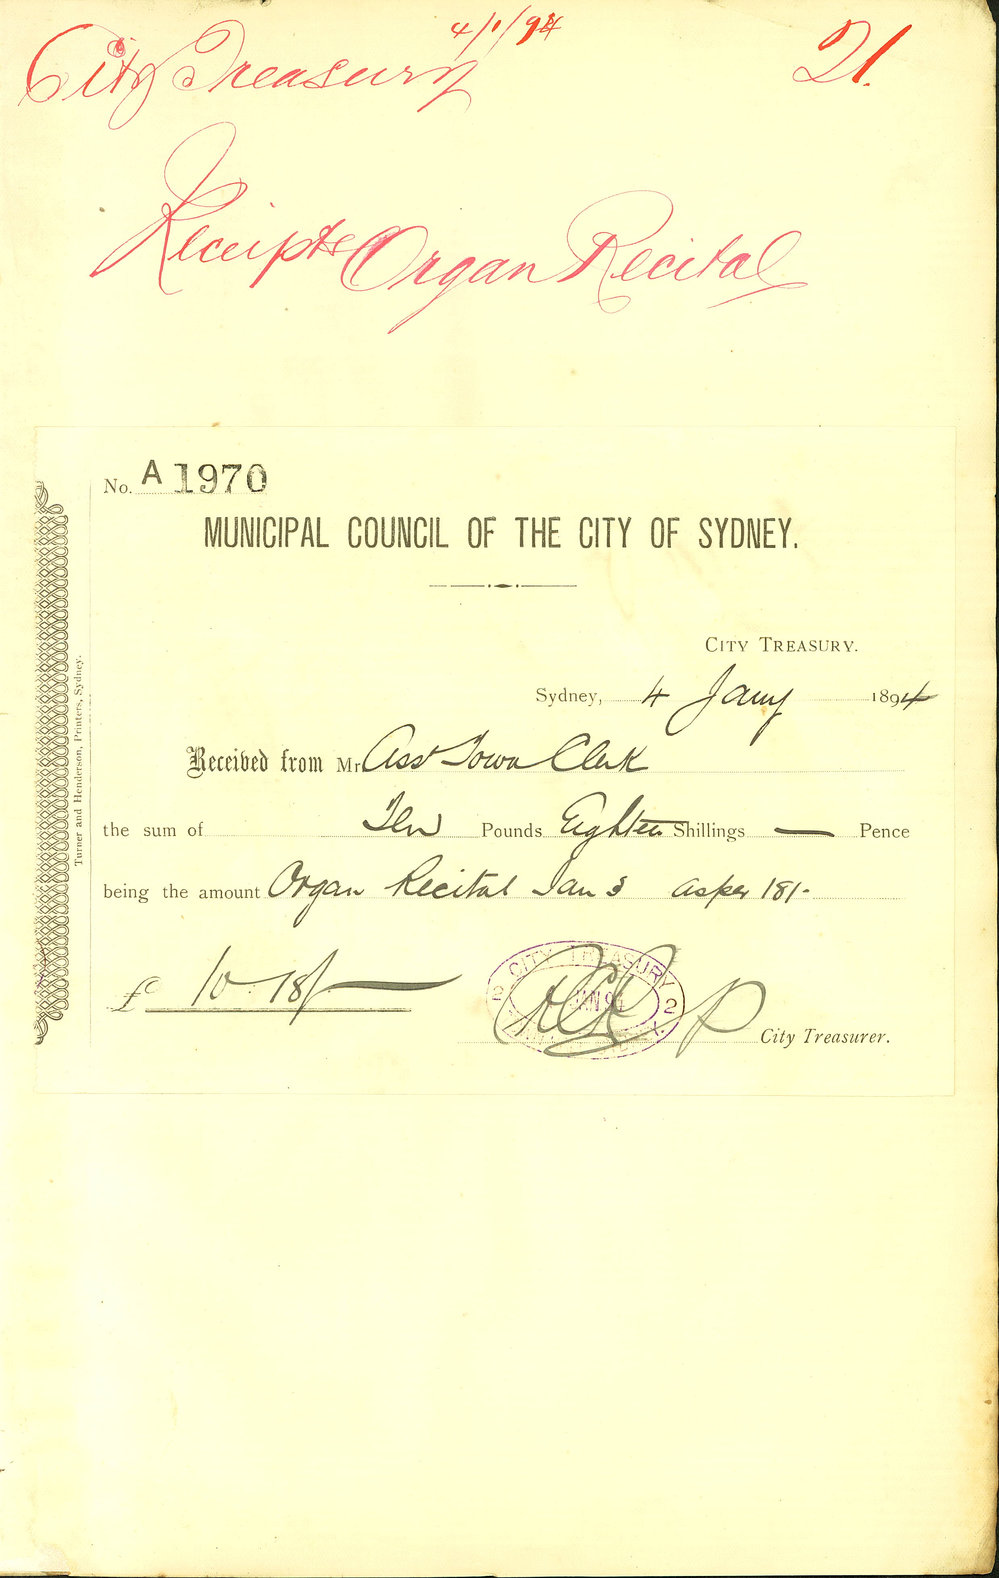 4/1/94
City Treasury 21.
Receipts Organ Recital
No. A 1970
MUNICIPAL COUNCIL OF THE CITY OF SYDNEY.
CITY TREASURY.
Sydney, 4 Jany 1894
Received from Mr Asst Town Clerk
the sum of Ten Pounds Eighteen Shillings — Pence
being the amount Organ Recital Jan 3 as per 181-
£ 10-18/-
CITY TREASURY
2 JAN 94 2
City Treasurer.
Turner and Henderson, Printers, Sydney.